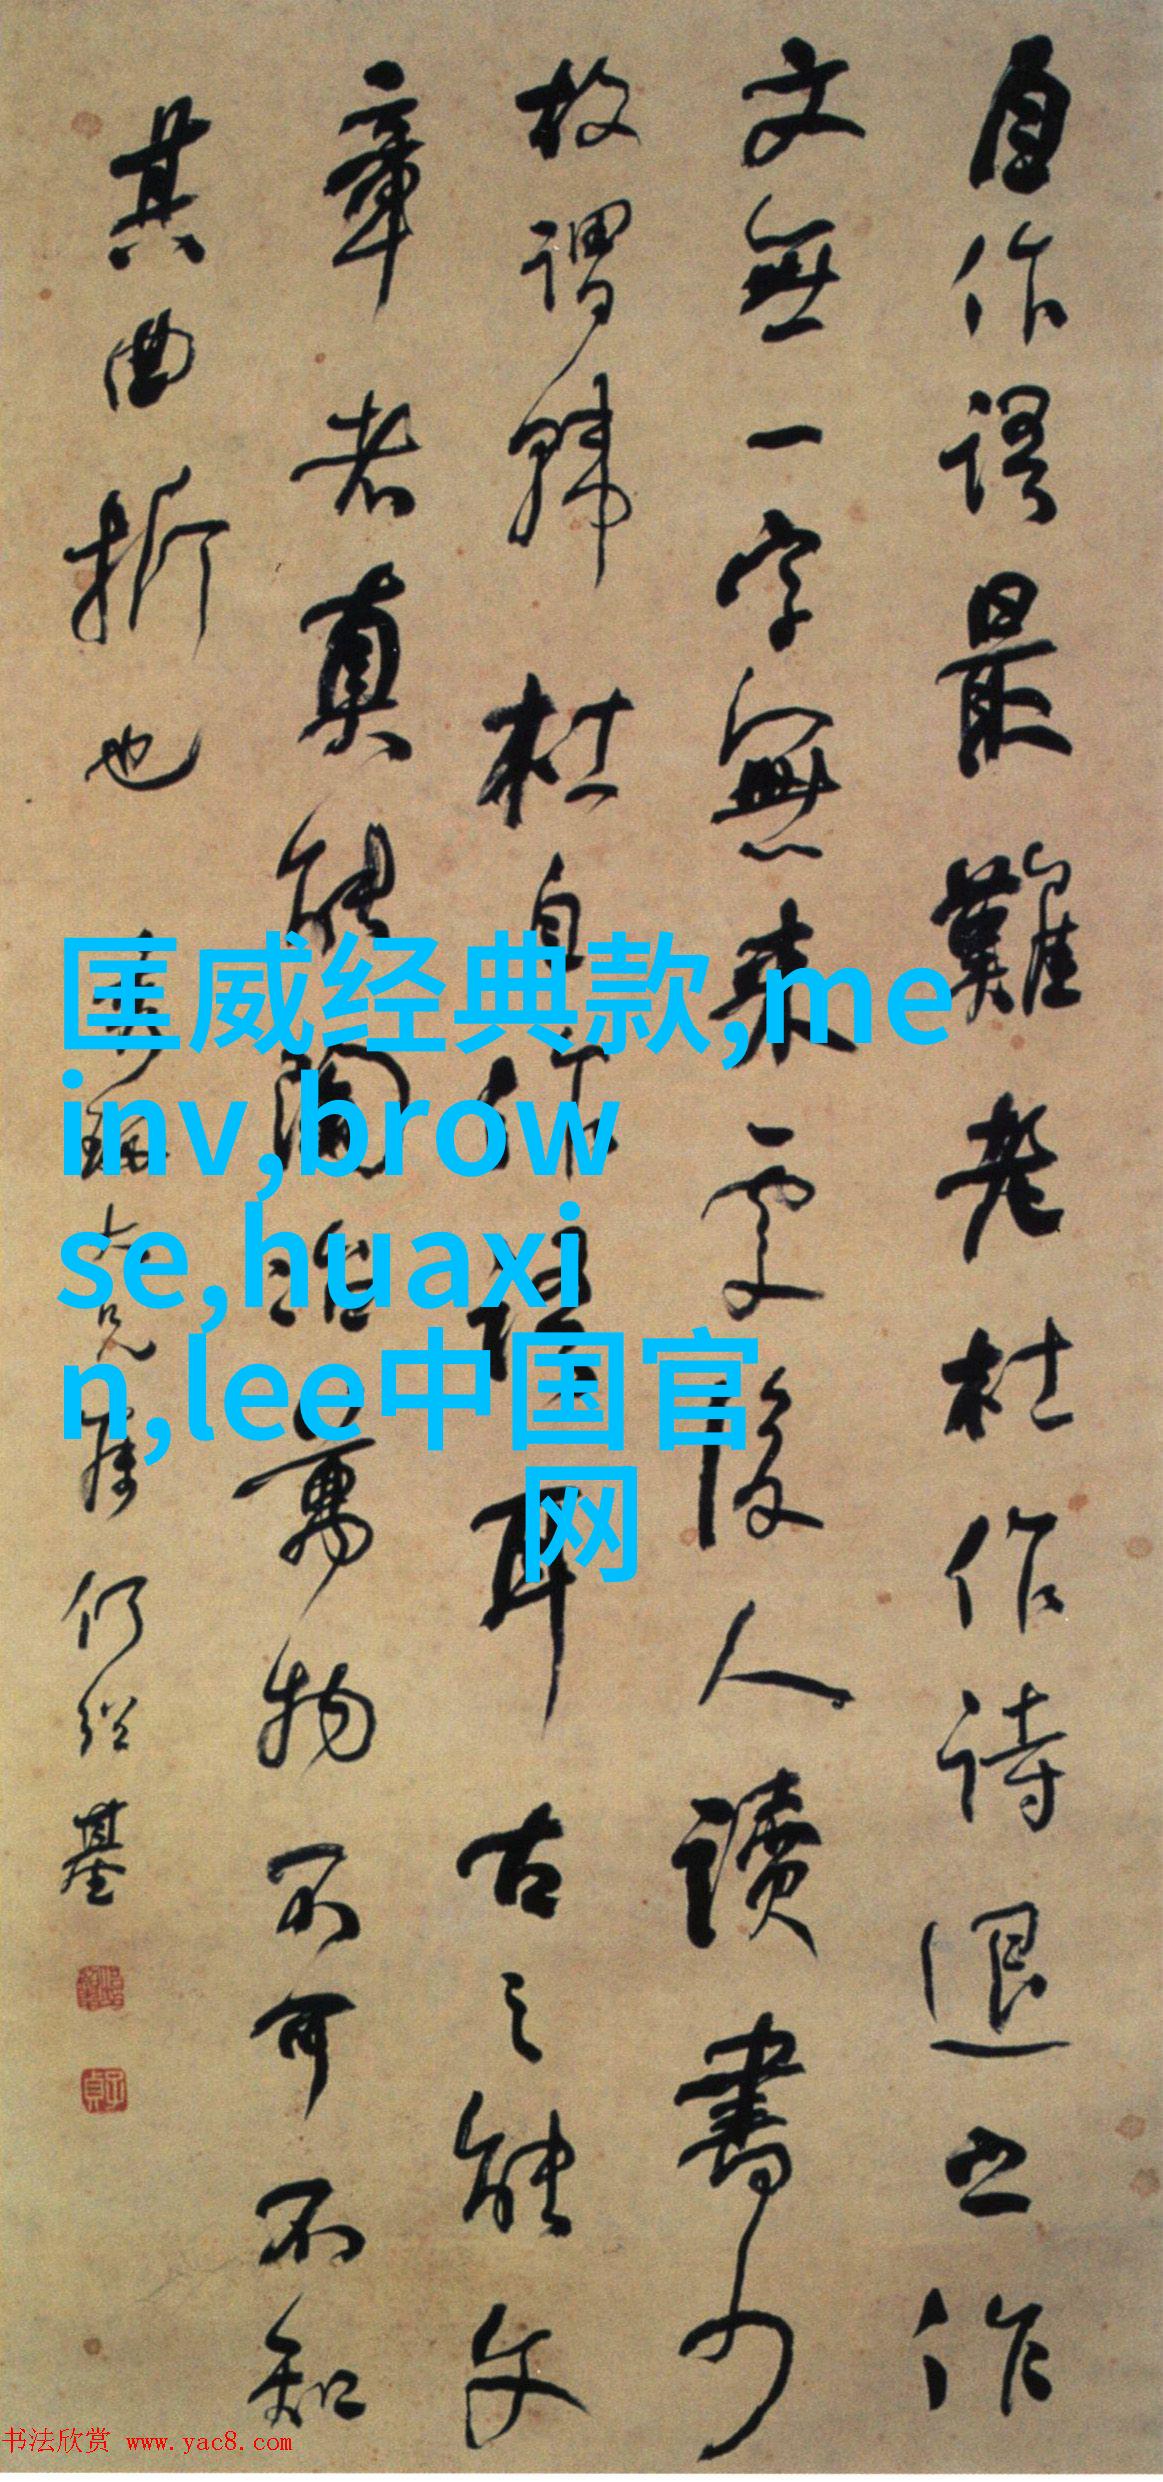 自作語最難老杜作詩退之作
文無一字無來處後人讀書少
故謂韓杜自作語耳古之能文
章者真能陶冶萬物不可不知
其曲折也
兄屬 何紹基
子貞
匡威经典款,me
inv,brow
se,huaxi
n,lee中国官
网
书法欣赏 www.yac8.com